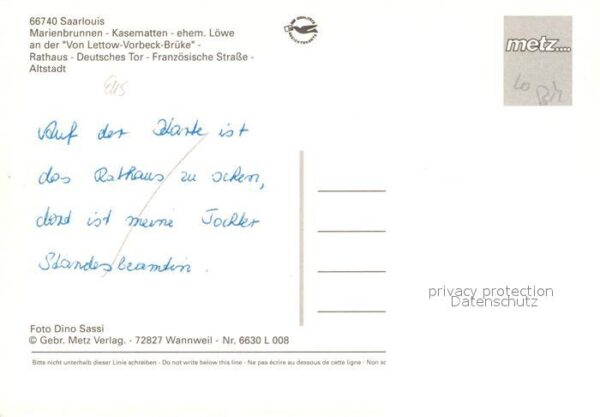 66740 Saarlouis
Marienbrunnen - Kasematten - ehem. Löwe
an der "Von Lettow-Vorbeck-Brüke" -
Rathaus - Deutsches Tor - Französische Straße -
Altstadt
metz....
Auf der Karte ist
das Rathaus zu sehen,
dort ist meine Tochter
Standesbeamtin.
privacy protection
Datenschutz
Foto Dino Sassi
© Gebr. Metz Verlag. - 72827 Wannweil - Nr. 6630 L 008
Bitte nicht unterhalb dieser Linie schreiben - Do not write below this line - Ne pas écrire au dessous de cette ligne - Non sc